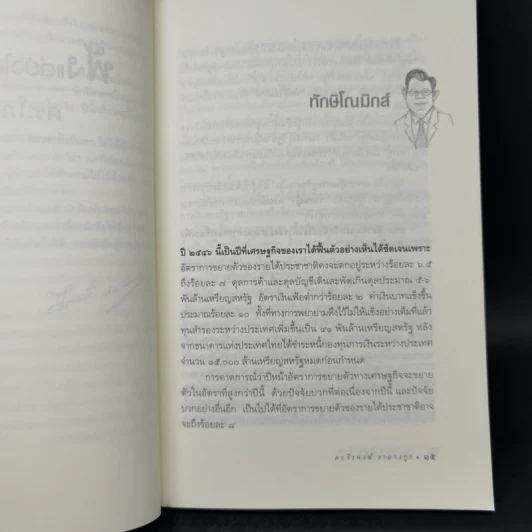 ทักษิโณมิกส์
ปี ๒๕๔๖ นี้เป็นปีที่เศรษฐกิจของเราได้ฟื้นตัวอย่างเห็นได้ชัดเจนเพราะ
อัตราการขยายตัวของรายได้ประชาชาติคงจะตกอยู่ระหว่างร้อยละ ๖.๕
ถึงร้อยละ ๗ ดุลการค้าและดุลบัญชีเดินสะพัดเกินดุลประมาณ ๕-๖
พันล้านเหรียญสหรัฐ อัตราเงินเฟ้อต่ำกว่าร้อยละ ๒ ค่าเงินบาทแข็งขึ้น
ประมาณร้อยละ ๑๐ ทั้งที่ทางการพยายามดึงไว้ไม่ให้แข็งอย่างเต็มที่แล้ว
ทุนสำรองระหว่างประเทศเพิ่มขึ้นเป็น ๔๑ พันล้านเหรียญสหรัฐ หลัง
จากธนาคารแห่งประเทศไทยได้ชำระหนี้กองทุนการเงินระหว่างประเทศ
จำนวน ๑๕,๐๐๐ ล้านเหรียญสหรัฐหมดก่อนกำหนด
การคาดการณ์ว่าปีหน้าอัตราการขยายตัวทางเศรษฐกิจจะขยาย
ตัวในอัตราที่สูงกว่าปีนี้ ด้วยปัจจัยบวกที่ต่อเนื่องจากปีนี้ และปัจจัย
บวกอย่างอื่นอีก เป็นไปได้ที่อัตราการขยายตัวของรายได้ประชาชาติอาจ
จะถึงร้อยละ ๘
ดร.วีรพงษ์ รามางกูร • ๑๕